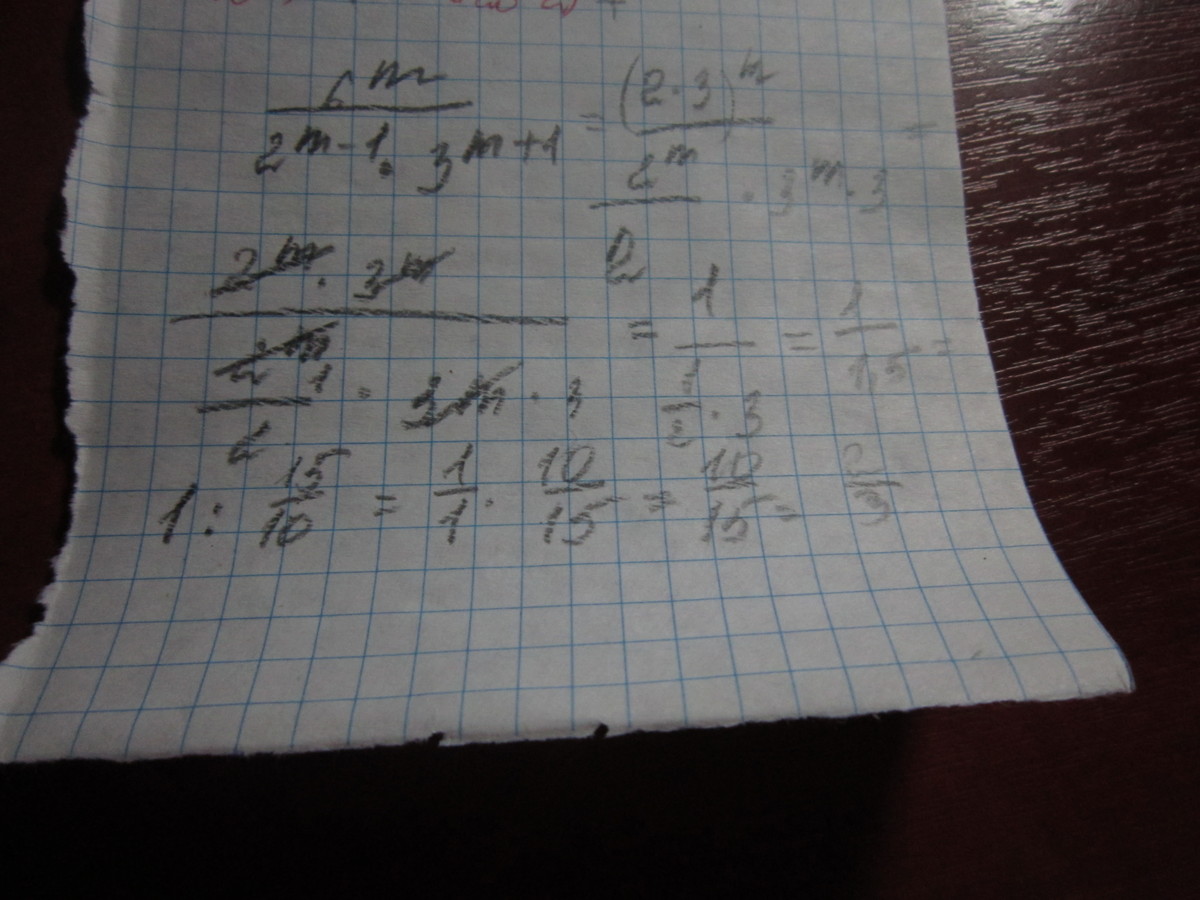 6^m / (2^(m-1) · 3^(m+1)) = (2·3)^m / ((2^m / 2) · 3^m · 3) =
(2^m · 3^m) / ((2^m / 2) · 3^m · 3) = 1 / ((1/2) · 3) = 1 / 1,5 =
1 : 15/10 = 1/1 · 10/15 = 10/15 = 2/3